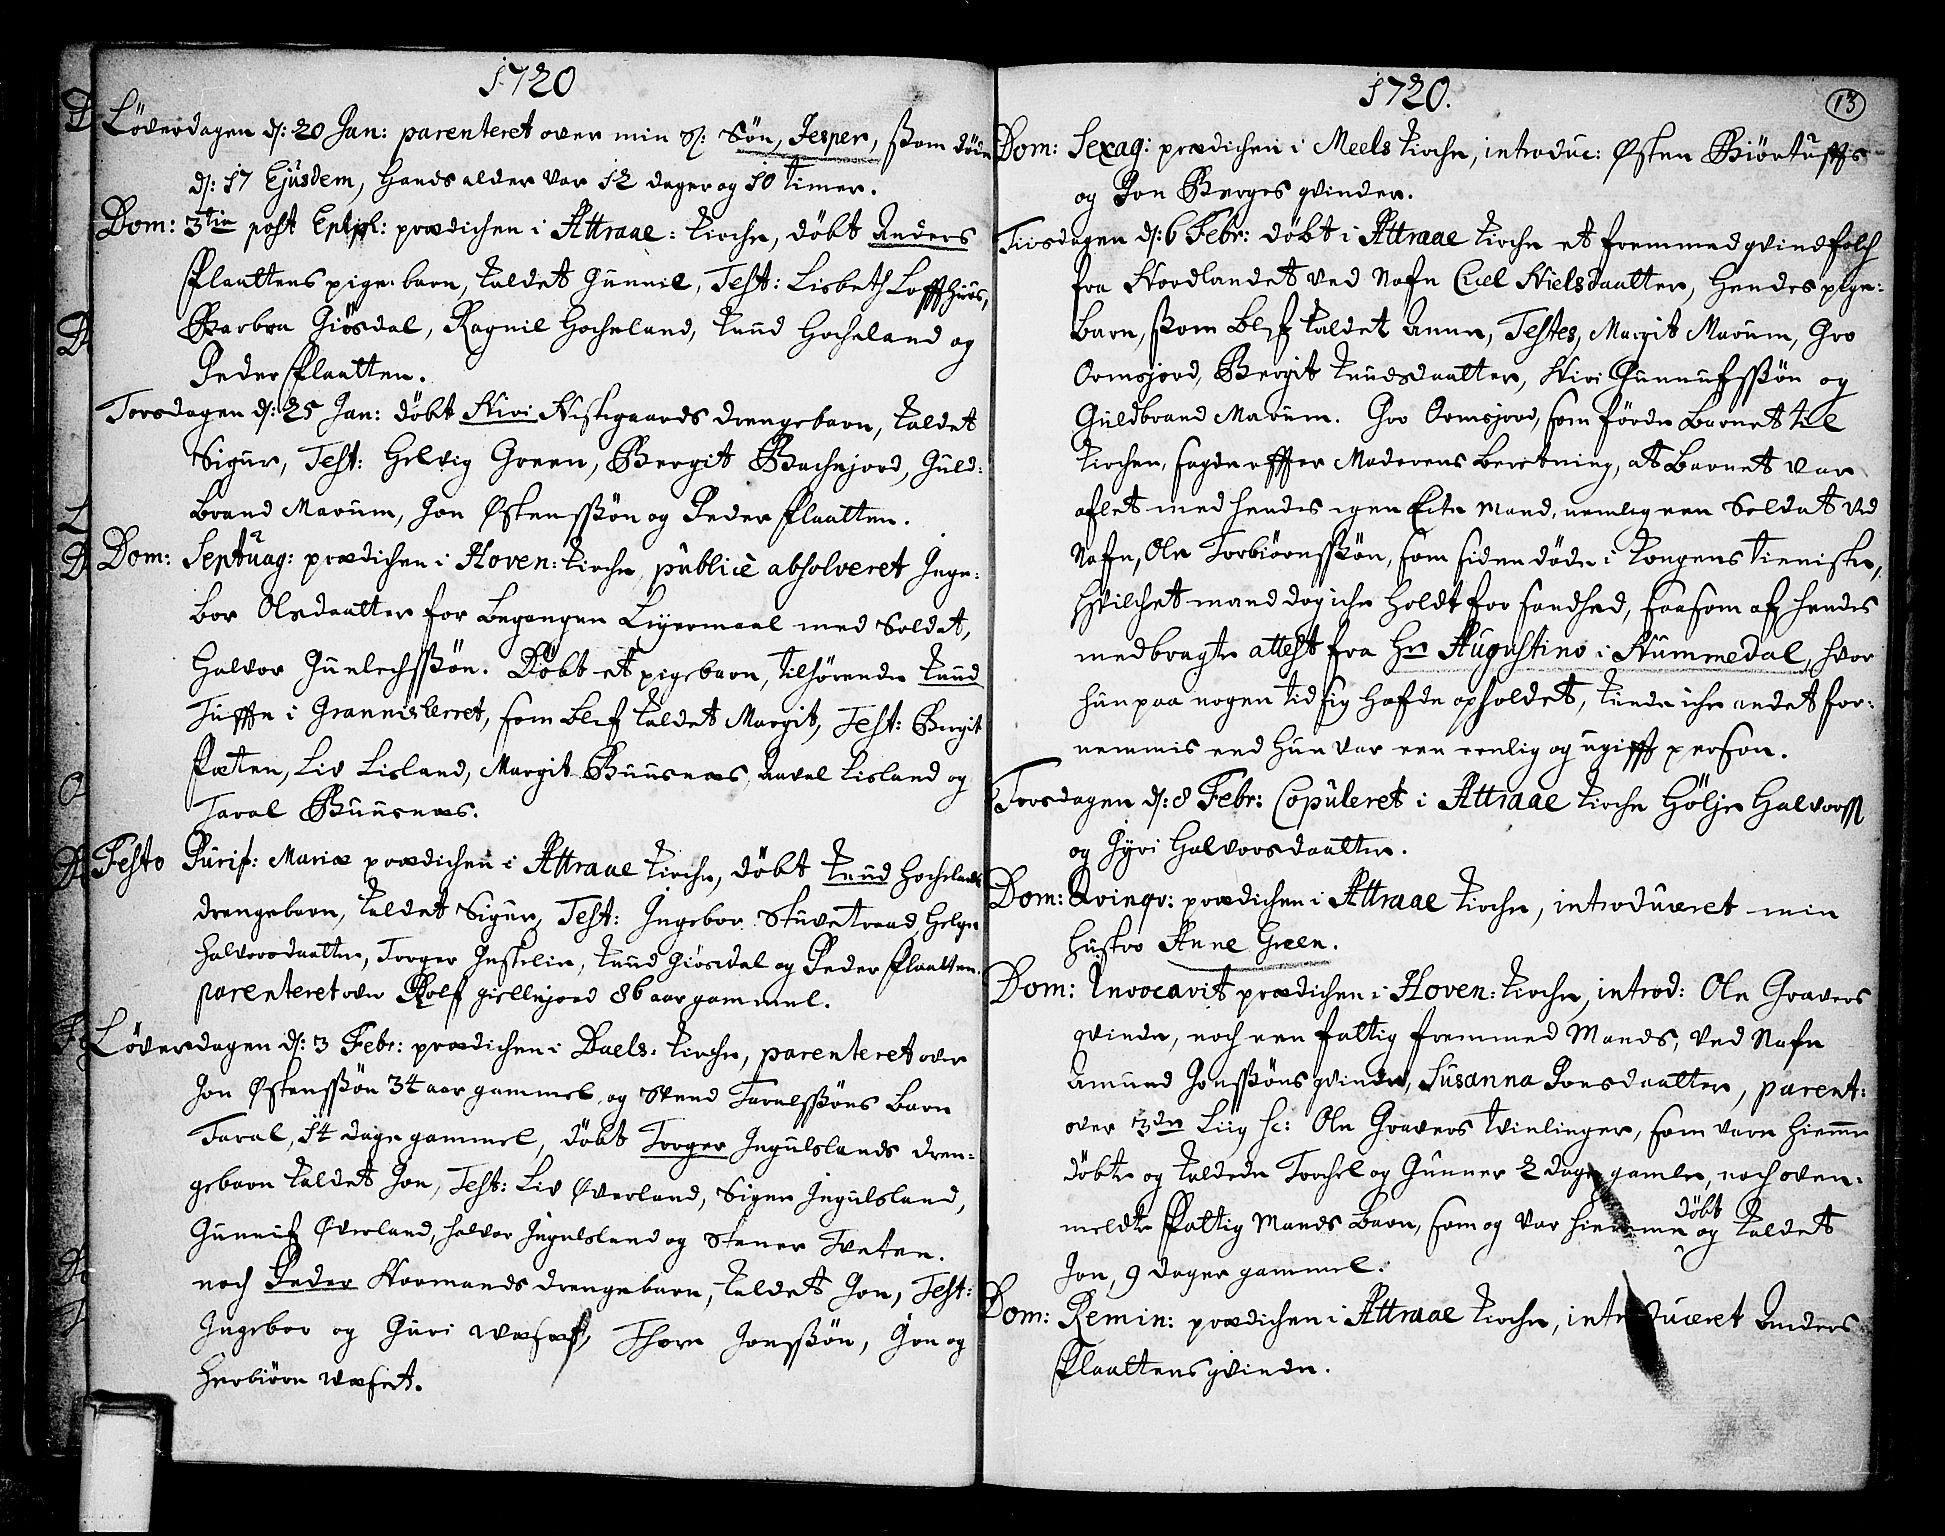 1720
Löverdagen d: 20 Jan: parenteret over min Sl: Søn, Jesper, ßom döde
d: 17 Ejusdem, hands alder var 12 dager og 10 timer.
Dom: 3tia post Epiph: prædichen i Attraae: Kirche, döbt Anders
Plaattens pige-barn, kaldet Gunnil, Test: Lisbeth Loffthuus,
Barbra Giösdal, Ragnil Hocheland, Knud Hocheland og
Peder Plaatten.
Torsdagen d: 25 Jan: döbt Nviri Miskegaards drengebarn, kaldet
Sigur, Test: Helvig Green, Bergit Bachejord, Guld-
brand Marum, Jon Østensßön og Peder Plaatten.
Dom: Septuag: prædichen i Hoven: Kirche, publicè absolveret Inge-
bor Olsdaatter for begangen Leyermaal med Soldat,
Halvor Gunlechsßön. Döbt et pigebarn, tilhörende Knud
Tuffte i Grannisherret, som blef kaldet Margit, Test: Bergit
Pæten, Liv Lisland, Margit Buusnæs, Aavel Lisland og
Taral Buusnæs.
Festo Purif: Mariæ prædichen i Attraae Kirche, döbt Knud Hochelands
drengebarn, kaldet Sigur, Test: Ingebor Stuvetraad, Helge
Halvorsdaatter, Torger Jestelin, Knud Giösdal og Peder Plaatten.
parenteret over Rolf giellejord 86 aar gammel.
Löverdagen d: 3 Febr: prædichen i Daels: Kirche, parenteret over
Jon Østensßön 34 aar gammel, og Svend Taralsßöns barn
Taral, 14 dage gammel, döbt Torger Ingulslands dren-
gebarn kaldet Jon, Test: Liv Øverland, Signe Ingulsland,
Gunnil Øverland, Halvor Ingulsland og Stener Tveten.
noch Peder Normands drengebarn, kaldet Jon, Test:
Ingebor og Guri Wæsæt, Thore Jonsßön, Jon og
Herbiörn Wæset.
1720.
13
Dom: Sexag: prædichen i Meels Kirche, introduc: Østen Biörtuffts
og Jon Berges qvinder.
Tiisdagen d: 6 Febr: döbt i Attraae Kirche et fremmed qvindfolch
fra Nordlandet ved Nafn Nielsdaatter, hendes pige-
barn, ßom blef kaldet Anne, Testes, Margit Marum, Gro
Ormsjord, Bergit Knudsdaatter, Gunnufsßön og
Guldbrand Marum. Gro Ormsjord, som förde barnet til
Kirchen, sagde effter Moderens beretning, at barnet var
aflet med hendes egen Ecte Mand, nemlig een Soldat ved
Nafn, Ole Torbiörnsßön, som siden döde i Kongens tieniste,
Hvilchet mand dog iche holdt for sandhed, saasom af hendes
medbragte attest fra Hrn Augustino i Nummedal, hvor
hun paa nogen tid sig hafde opholdet, kunde iche andet for-
nemmis end hun var een eenlig og ugifft person.
Torsdagen d: 8 Febr: Copuleret i Attraae Kirche Hölje Halvorss
og Jyri Halvorsdaatter.
Dom: Qvinqv: prædichen i Attraae Kirche, introduceret min
hustro Anne Green.
Dom: Invocavit prædichen i Hoven: Kirche, introd: Ole Gravers
qvinde, noch een fattig fremmed Mands, ved Nafn
Amund Jonsßöns qvinde, Susanna Jonsdaatter, parent:
over 3de Liig sc: Ole Gravers tvilinger, som vare hiemme
döbte og kaldede Torchel og Gunner 2 dage gamle, noch oven-
meldte fattig Mands barn, som og var hiemme döbt og kaldet
Jon, 9 dager gammel.
Dom: Remin: prædichen i Attraae Kirche, introduceret Anders
Plaattens qvinde.